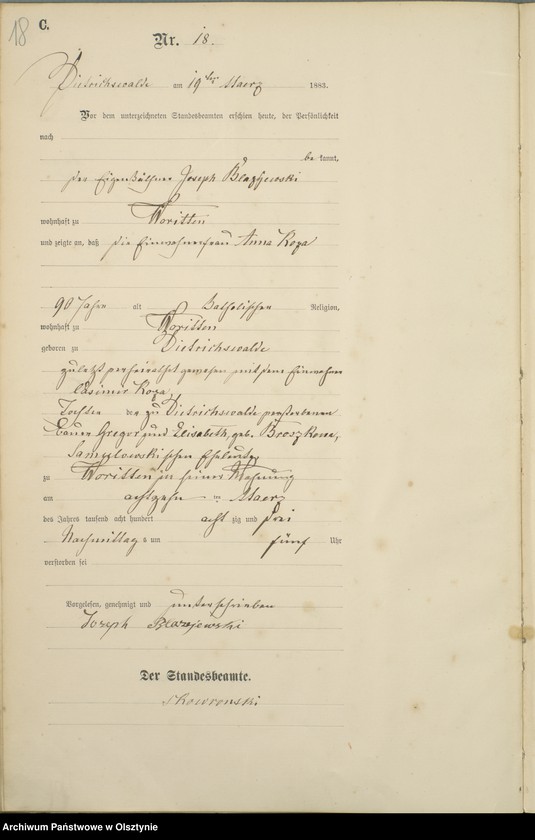 18
C.
Nr. 18.
Dietrichswalde am 19 ten Maerz 1883.
Vor dem unterzeichneten Standesbeamten erschien heute, der Persönlichkeit
nach
be kannt,
der Eigenkäthner Joseph Blazejewski
wohnhaft zu Woritten
und zeigte an, daß die Einwohnerfrau Anna Koza
90 Jahre alt katholischer Religion,
wohnhaft zu Woritten
geboren zu Dietrichswalde
zuletzt verheirathet gewesen mit dem Einwohner
Casimir Koza,
Tochter der zu Dietrichswalde verstorbenen
Bauer Gregor und Elisabeth, geb.
schen Eheleute
zu Woritten in seiner Wohnung
am achtzehn ten Maerz
des Jahres tausend acht hundert acht zig und drei
Nachmittag s um fünf Uhr
verstorben sei
Vorgelesen, genehmigt und unterschrieben
Jozeph Blazejewski
Der Standesbeamte.
Skowronski
Archiwum Państwowe w Olsztynie